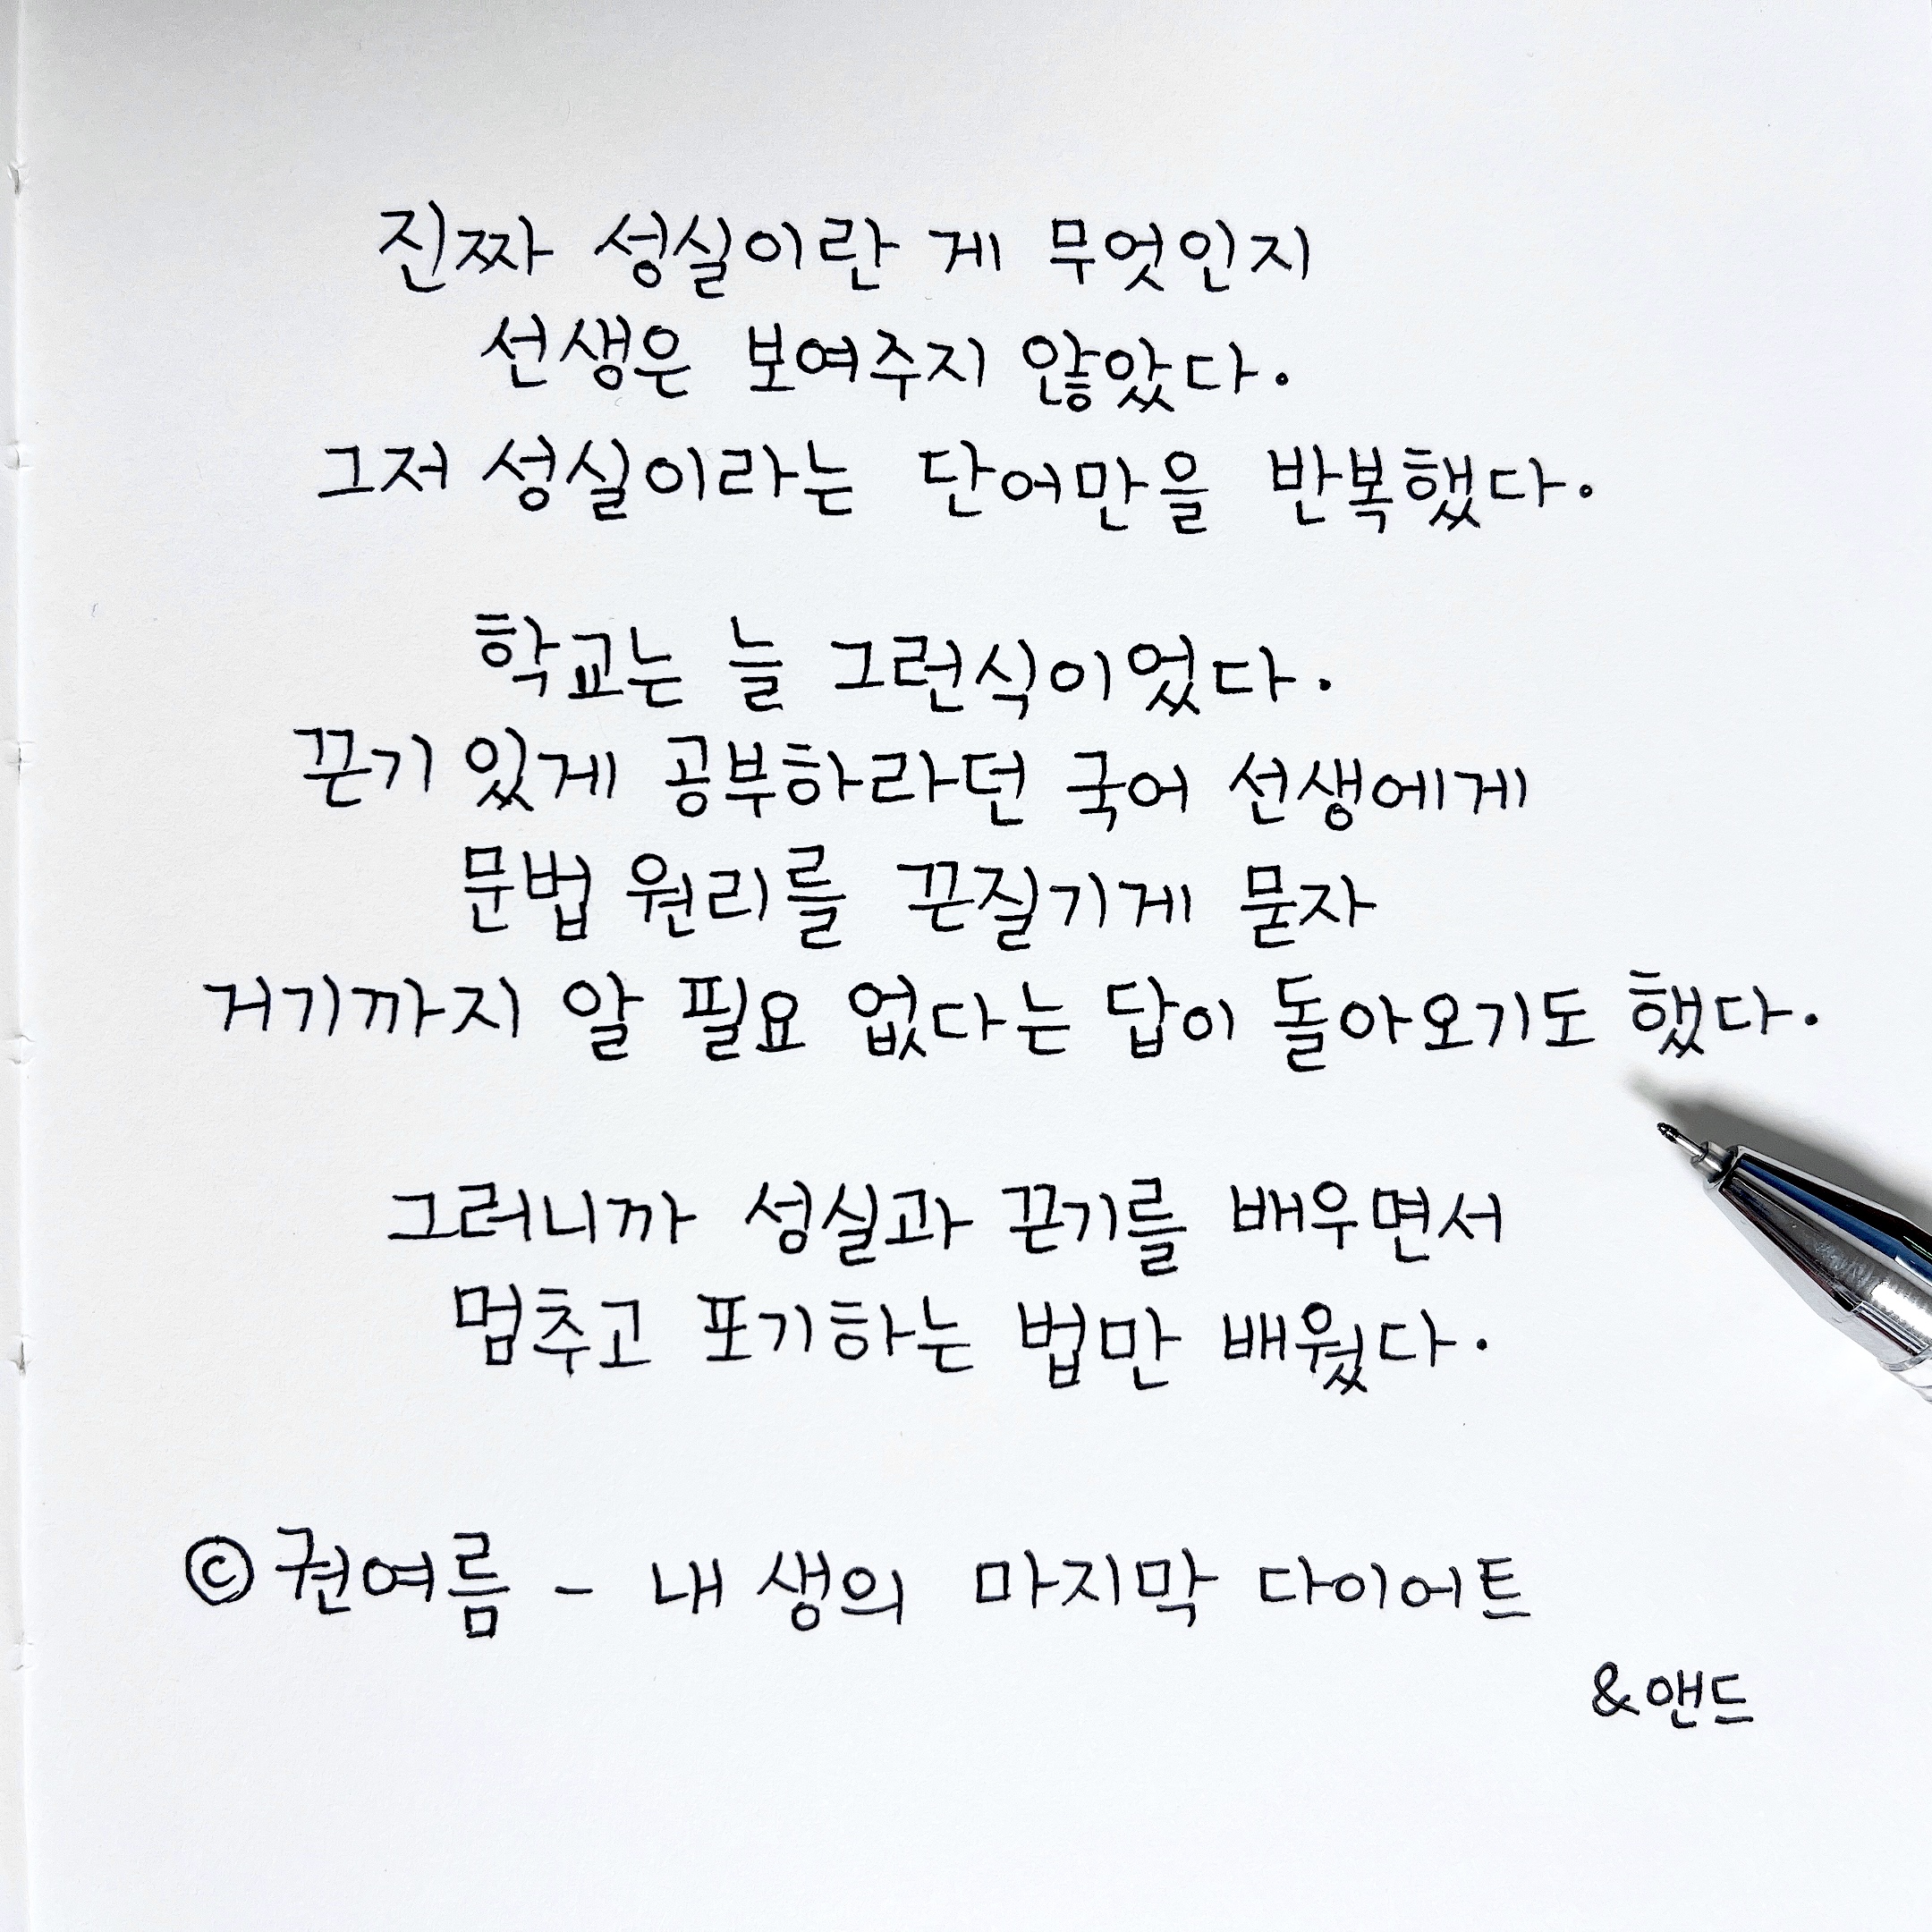 진짜 성실이란 게 무엇인지
선생은 보여주지 않았다.
그저 성실이라는 단어만을 반복했다.
학교는 늘 그런식이었다.
끈기 있게 공부하라던 국어 선생에게
문법 원리를 끈질기게 묻자
거기까지 알 필요 없다는 답이 돌아오기도 했다.
그러니까 성실과 끈기를 배우면서
멈추고 포기하는 법만 배웠다.
© 권여름 - 내 생의 마지막 다이어트
&앤드